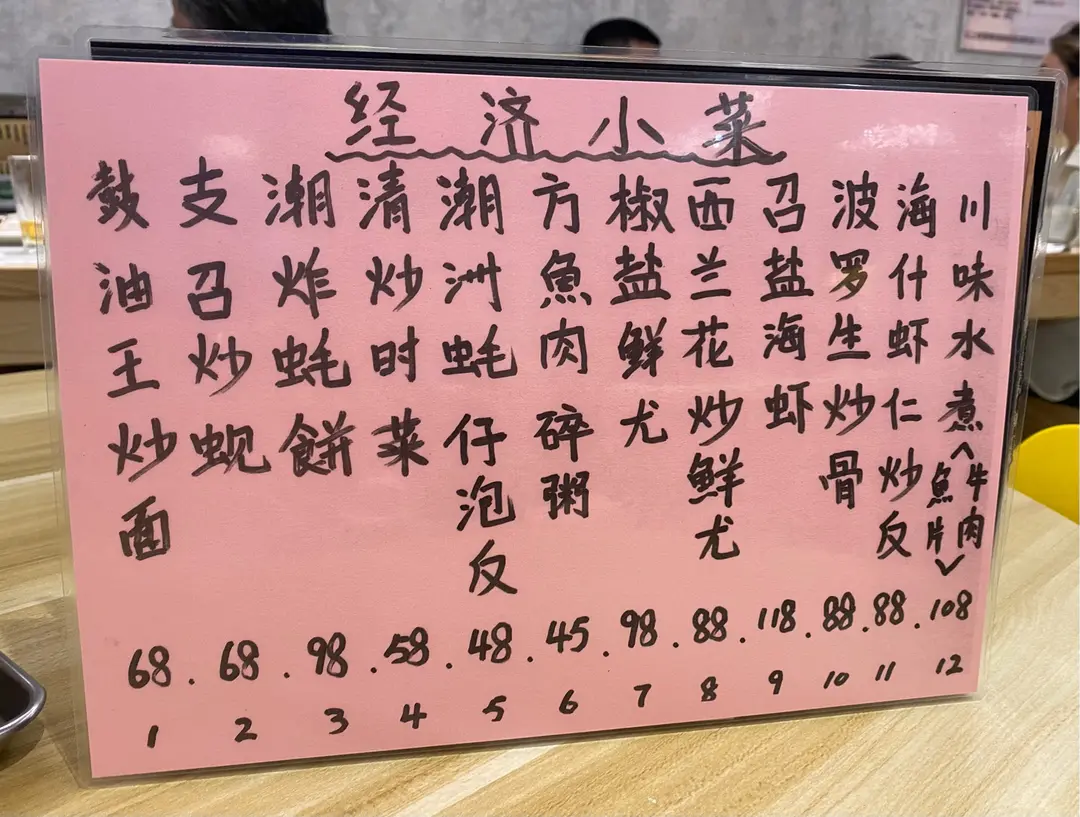 经济小菜
鼓油王炒面
支召炒蚬
潮炸蚝餅
清炒时菜
潮洲蚝仔泡反
方魚肉碎粥
椒盐鲜尤
西兰花炒鲜尤
召盐海虾
波罗生炒骨
海什虾仁炒反
川味水煮<牛肉魚片>
68 . 68 . 98 . 58 . 48 . 45 . 98 . 88 . 118 . 88 . 88 . 108
1 2 3 4 5 6 7 8 9 10 11 12